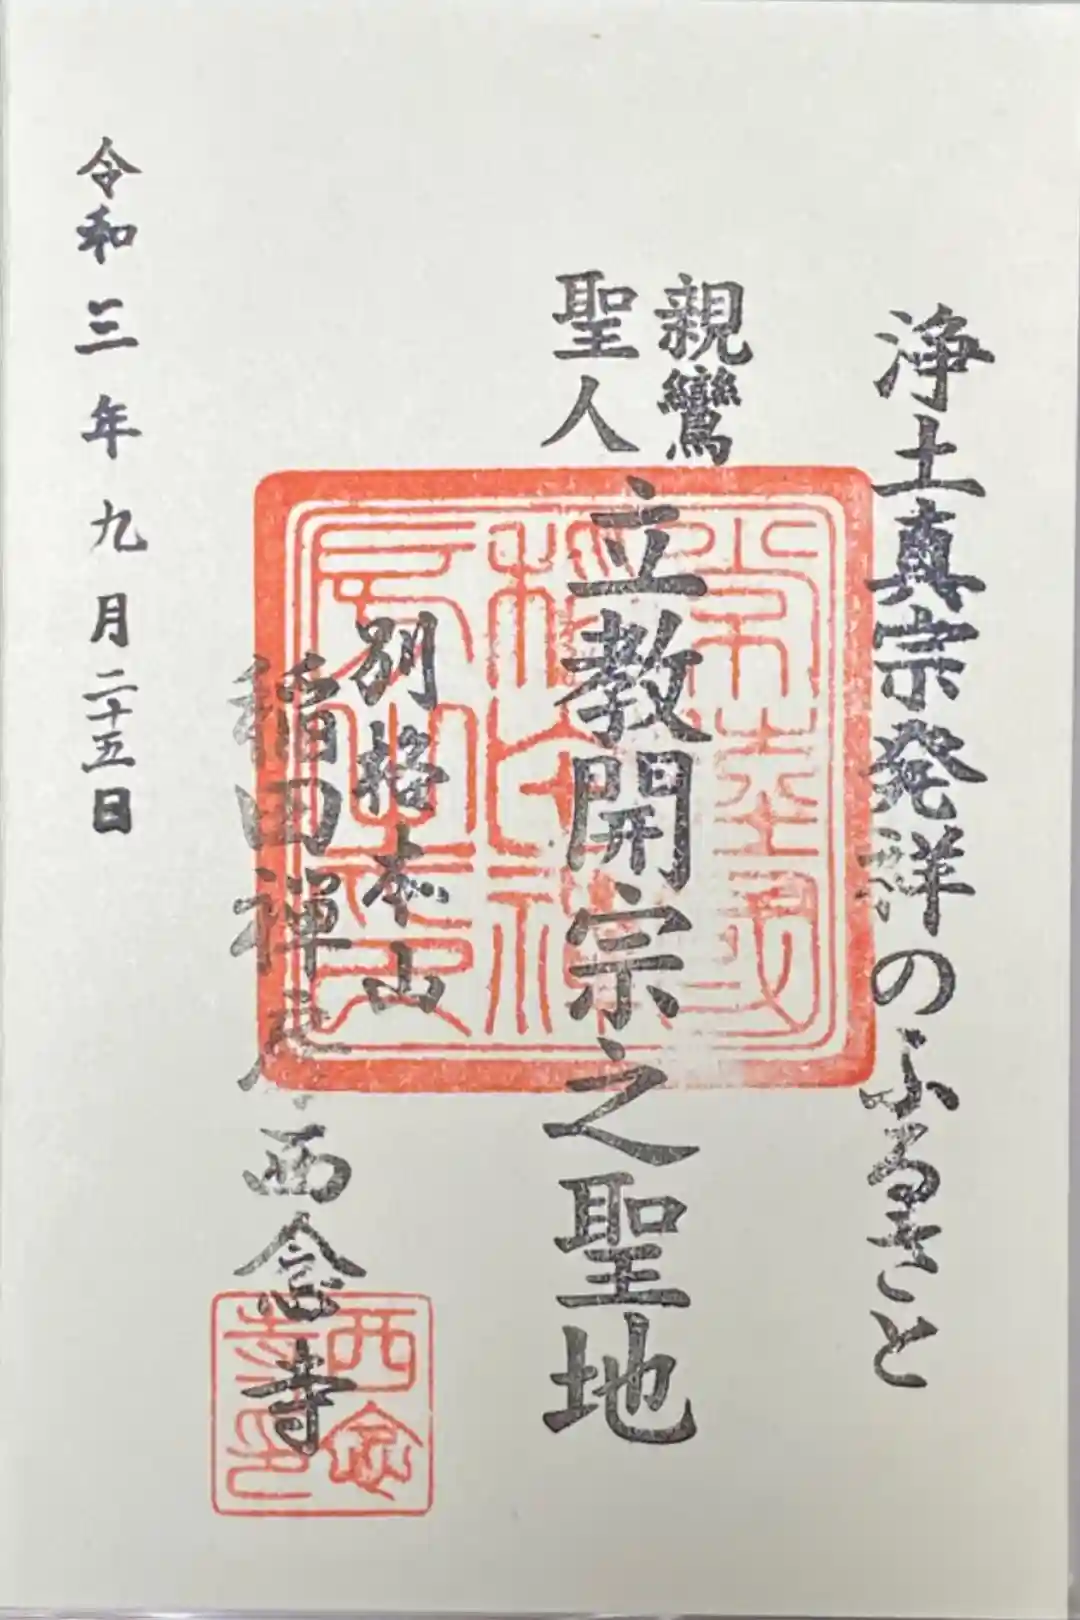 浄土真宗発祥のふるさと
親鸞
聖人
立教開宗之聖地
別格本山
稲田禅房西念寺
令和三年九月二十五日
西念
寺印